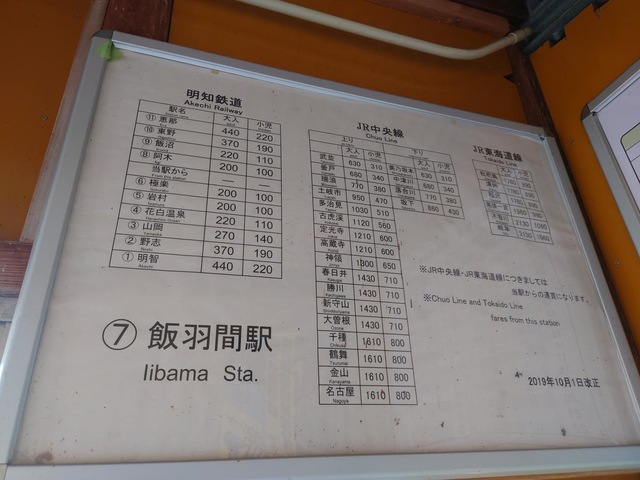 明知鉄道
Akechi Railway
駅名 大人 小児
⑪ 恵那 440 220
⑩ 東野 370 190
⑨ 飯沼 220 110
⑧ 阿木 200 100
当駅から
From this station
⑥ 極楽 200 100
⑤ 岩村 200 100
④ 花白温泉 220 110
③ 山岡 270 140
② 野志 370 190
① 明智 440 220
⑦ 飯羽間駅
Iibama Sta.
JR中央線
Chuo Line
上り 大人 小児 下り 大人 小児
武並 630 310 美乃坂本 630 310
釜戸 680 340 中津川 680 340
瑞浪 710 380 落合川 770 380
土岐市 950 470 坂下 860 430
多治見 1030 510
古虎渓 1120 560
定光寺 1210 600
高蔵寺 1210 600
神領 1300 650
春日井 1430 710
勝川 1430 710
新守山 1430 710
大曽根 1430 710
千種 1610 800
鶴舞 1610 800
金山 1610 800
名古屋 1610 800
JR東海道線
Tokaido Line
大人 小児
※JR中央線・JR東海道線につきましては
当駅からの運賃になります。
※Chuo Line and Tokaido Line
fares from this station
2019年10月1日改正